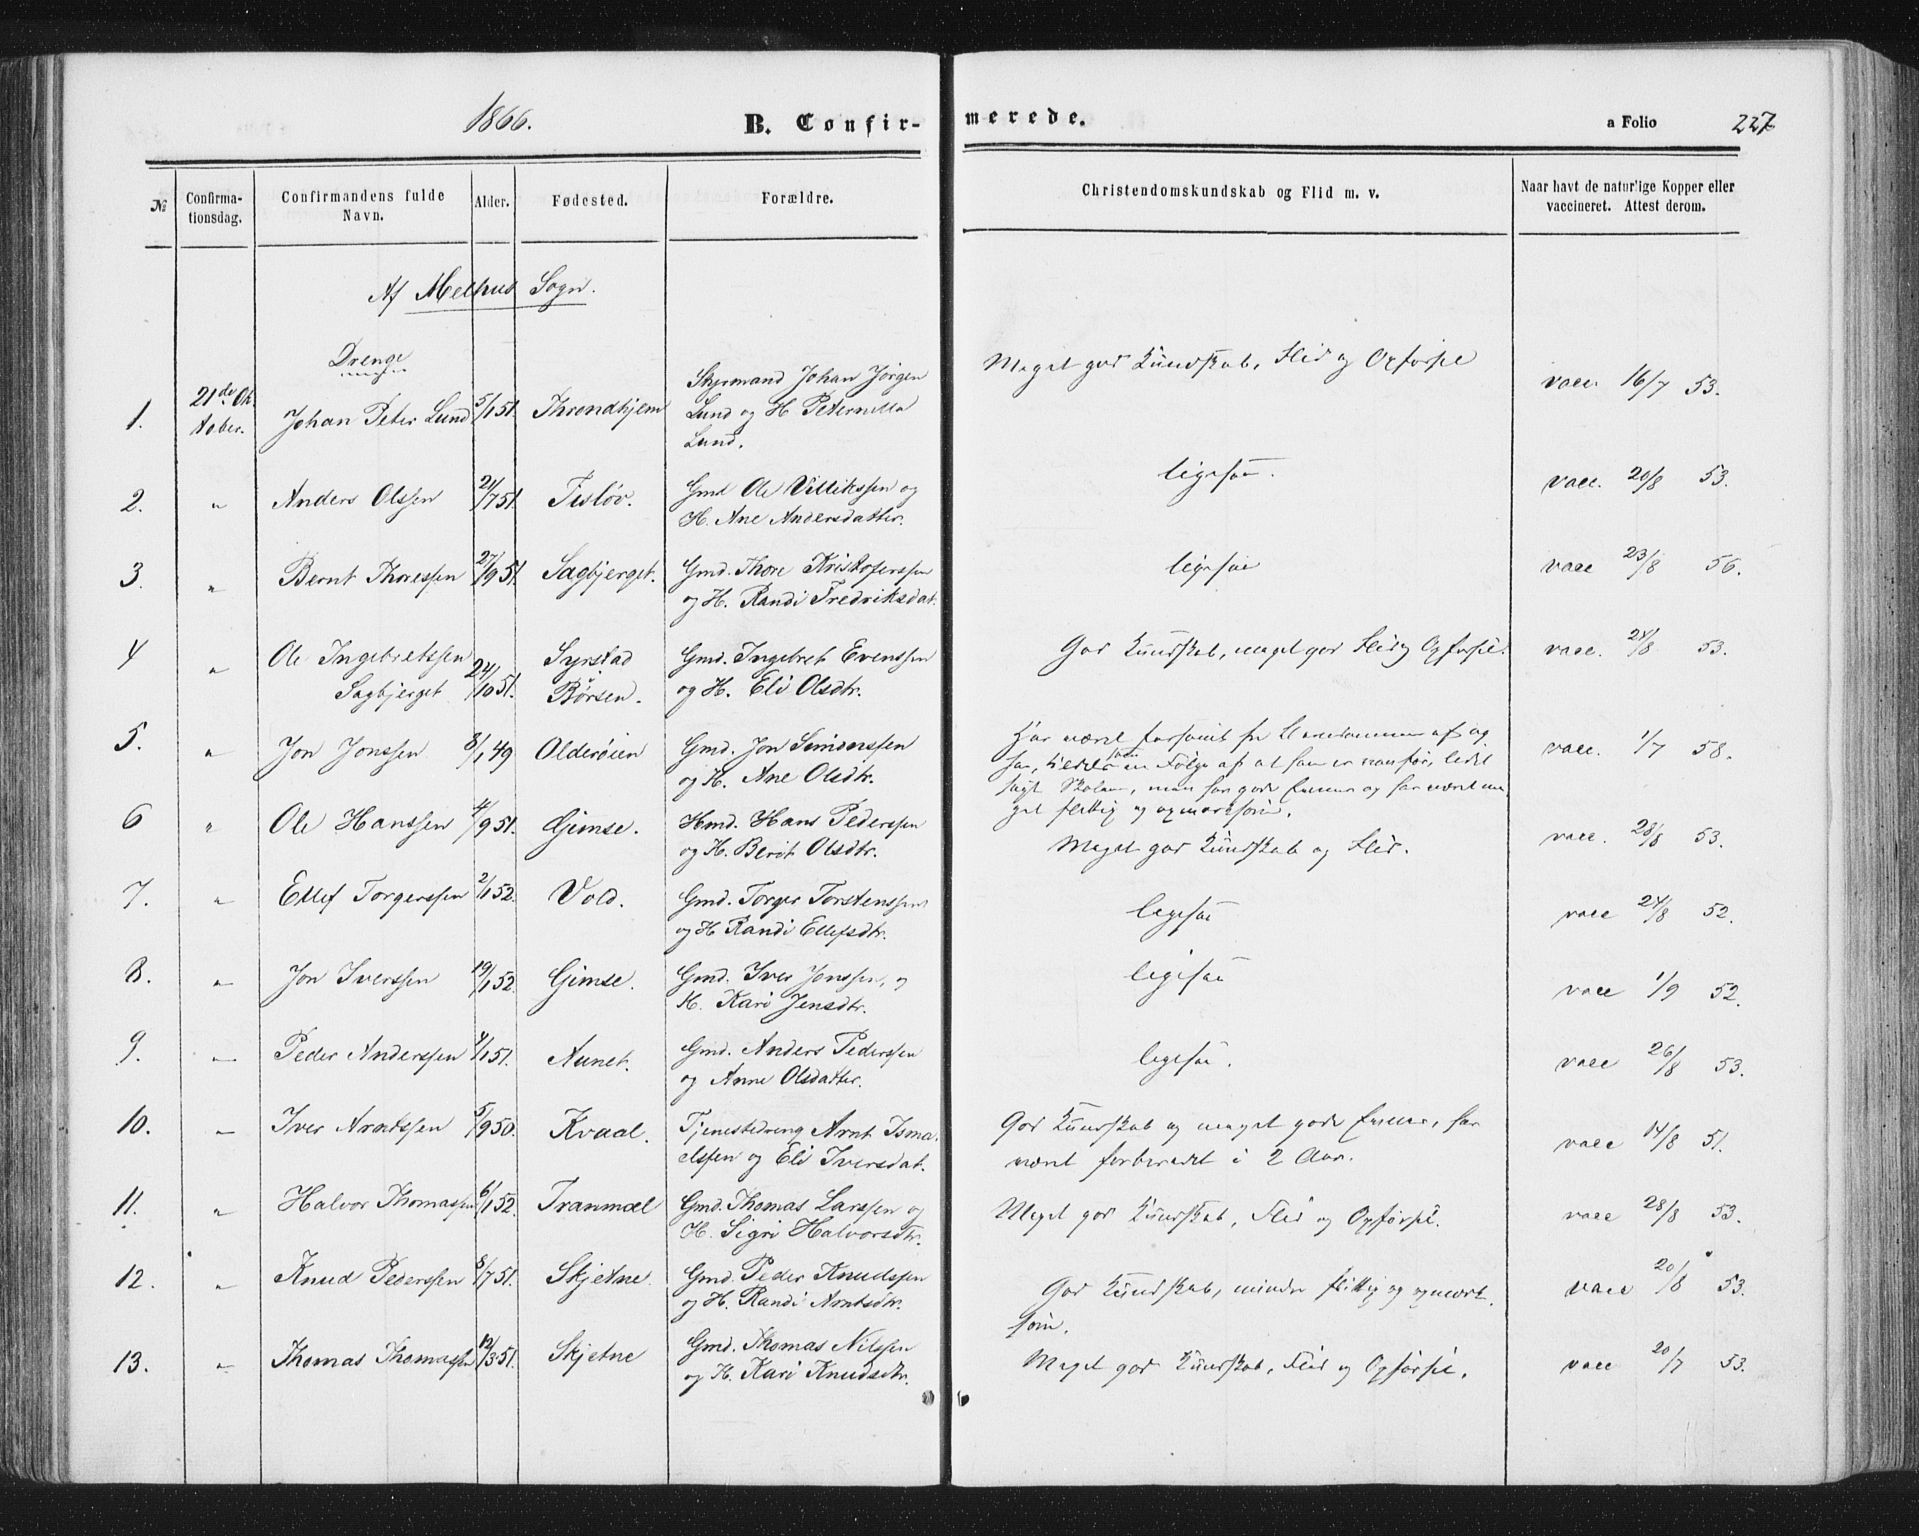 1866.
B. Confirmerede.
a Folio 227
№ Confirmationsdag. Confirmandens fulde Navn. Alder. Fødested. Forældre. Christendomskundskab og Flid m. v. Naar havt de natur'lige Kopper eller vaccineret. Attest derom.
Af Melhus Sogn.
Drenge
1. 21de Oktober. Johan Peter Lund 5/1 51. Throndhjem Johan Jørgen Lund og H Peternilla Lund. Meget god Kundskab, Flid og Opførsel vacc. 16/7 53.
2. " Anders Olssen 21/7 51. Tisløv. Gmd Ole og H. Ane Andersdatter. ligesaa. vacc. 20/8 53.
3. " Bernt Thoressen 27/9 51. Sagbjerget. Gmd. Thore Kristofersen og H. Randi Fredriksdat. ligesaa vacc 23/8 56.
4 " Ole Ingebretssen Sagbjerget 24/10 51. Syrstad Børsen. Gmd. Ingebret Evenssen og H. Eli Olsdtr. God Kundskab, meget god Flid og Opførsel. vacc. 24/8 53.
5. " Jon Jonssen 8/1 49 Olderøien Gmd. Jon Simonssen og H. Ane Olsdtr. Har været forsømt fra Barndommen af og har, som en Følge af at han er vanfør, lidet søgt Skolen, men har gode Evner og har været meget flittig og opmærksom. vacc. 1/7 58.
6 " Ole Hanssen 4/9 51. Gimse. Hmd. Hans Pederssen og H. Berit Olsdtr. Meget god Kundskab og Flid. vacc. 28/8 53.
7. " Ellef Torgerssen 2/1 52. Vold. Gmd. Torger Torstenssen og H Randi Ellefsdtr. ligesaa vacc 24/8 52.
8. " Jon Iverssen 19/1 52. Gimse. Gmd. Iver Jonssen, og H. Kari Jensdtr. ligesaa vacc 1/9 52.
9. " Peder Anderssen 4/1 51. Aunet. Gmd. Anders Pederssen og Anne Olsdatter. ligesaa. vacc 26/8 53.
10. " Iver Arntssen 5/9 50. Kvaal. Tjenestedreng Arnt Ismaelssen og Eli Iversdat. God Kundskab og meget gode Evner, har været forberedet i 2 Aar. vacc 14/8 51.
11. " Halvor Thomassen 6/1 52. Tranmæl Gmd. Thomas Larssen og H. Sigri Halvorsdtr. Meget god Kundskab, Flid og Opførsel. vacc 28/8 53.
12. " Knud Pederssen 8/7 51. Skjetne. Gmd. Peder Knudssen og H. Randi Arntsdtr. God Kundskab, mindre flittig og opmærksom. vacc 20/8 53.
13. " Thomas Thomassen 12/3 51. Skjetne Gmd. Thomas Nilssen og H. Kari Knudsdtr. Meget god Kundskab, Flid og Opførsel. vacc 20/7 53.